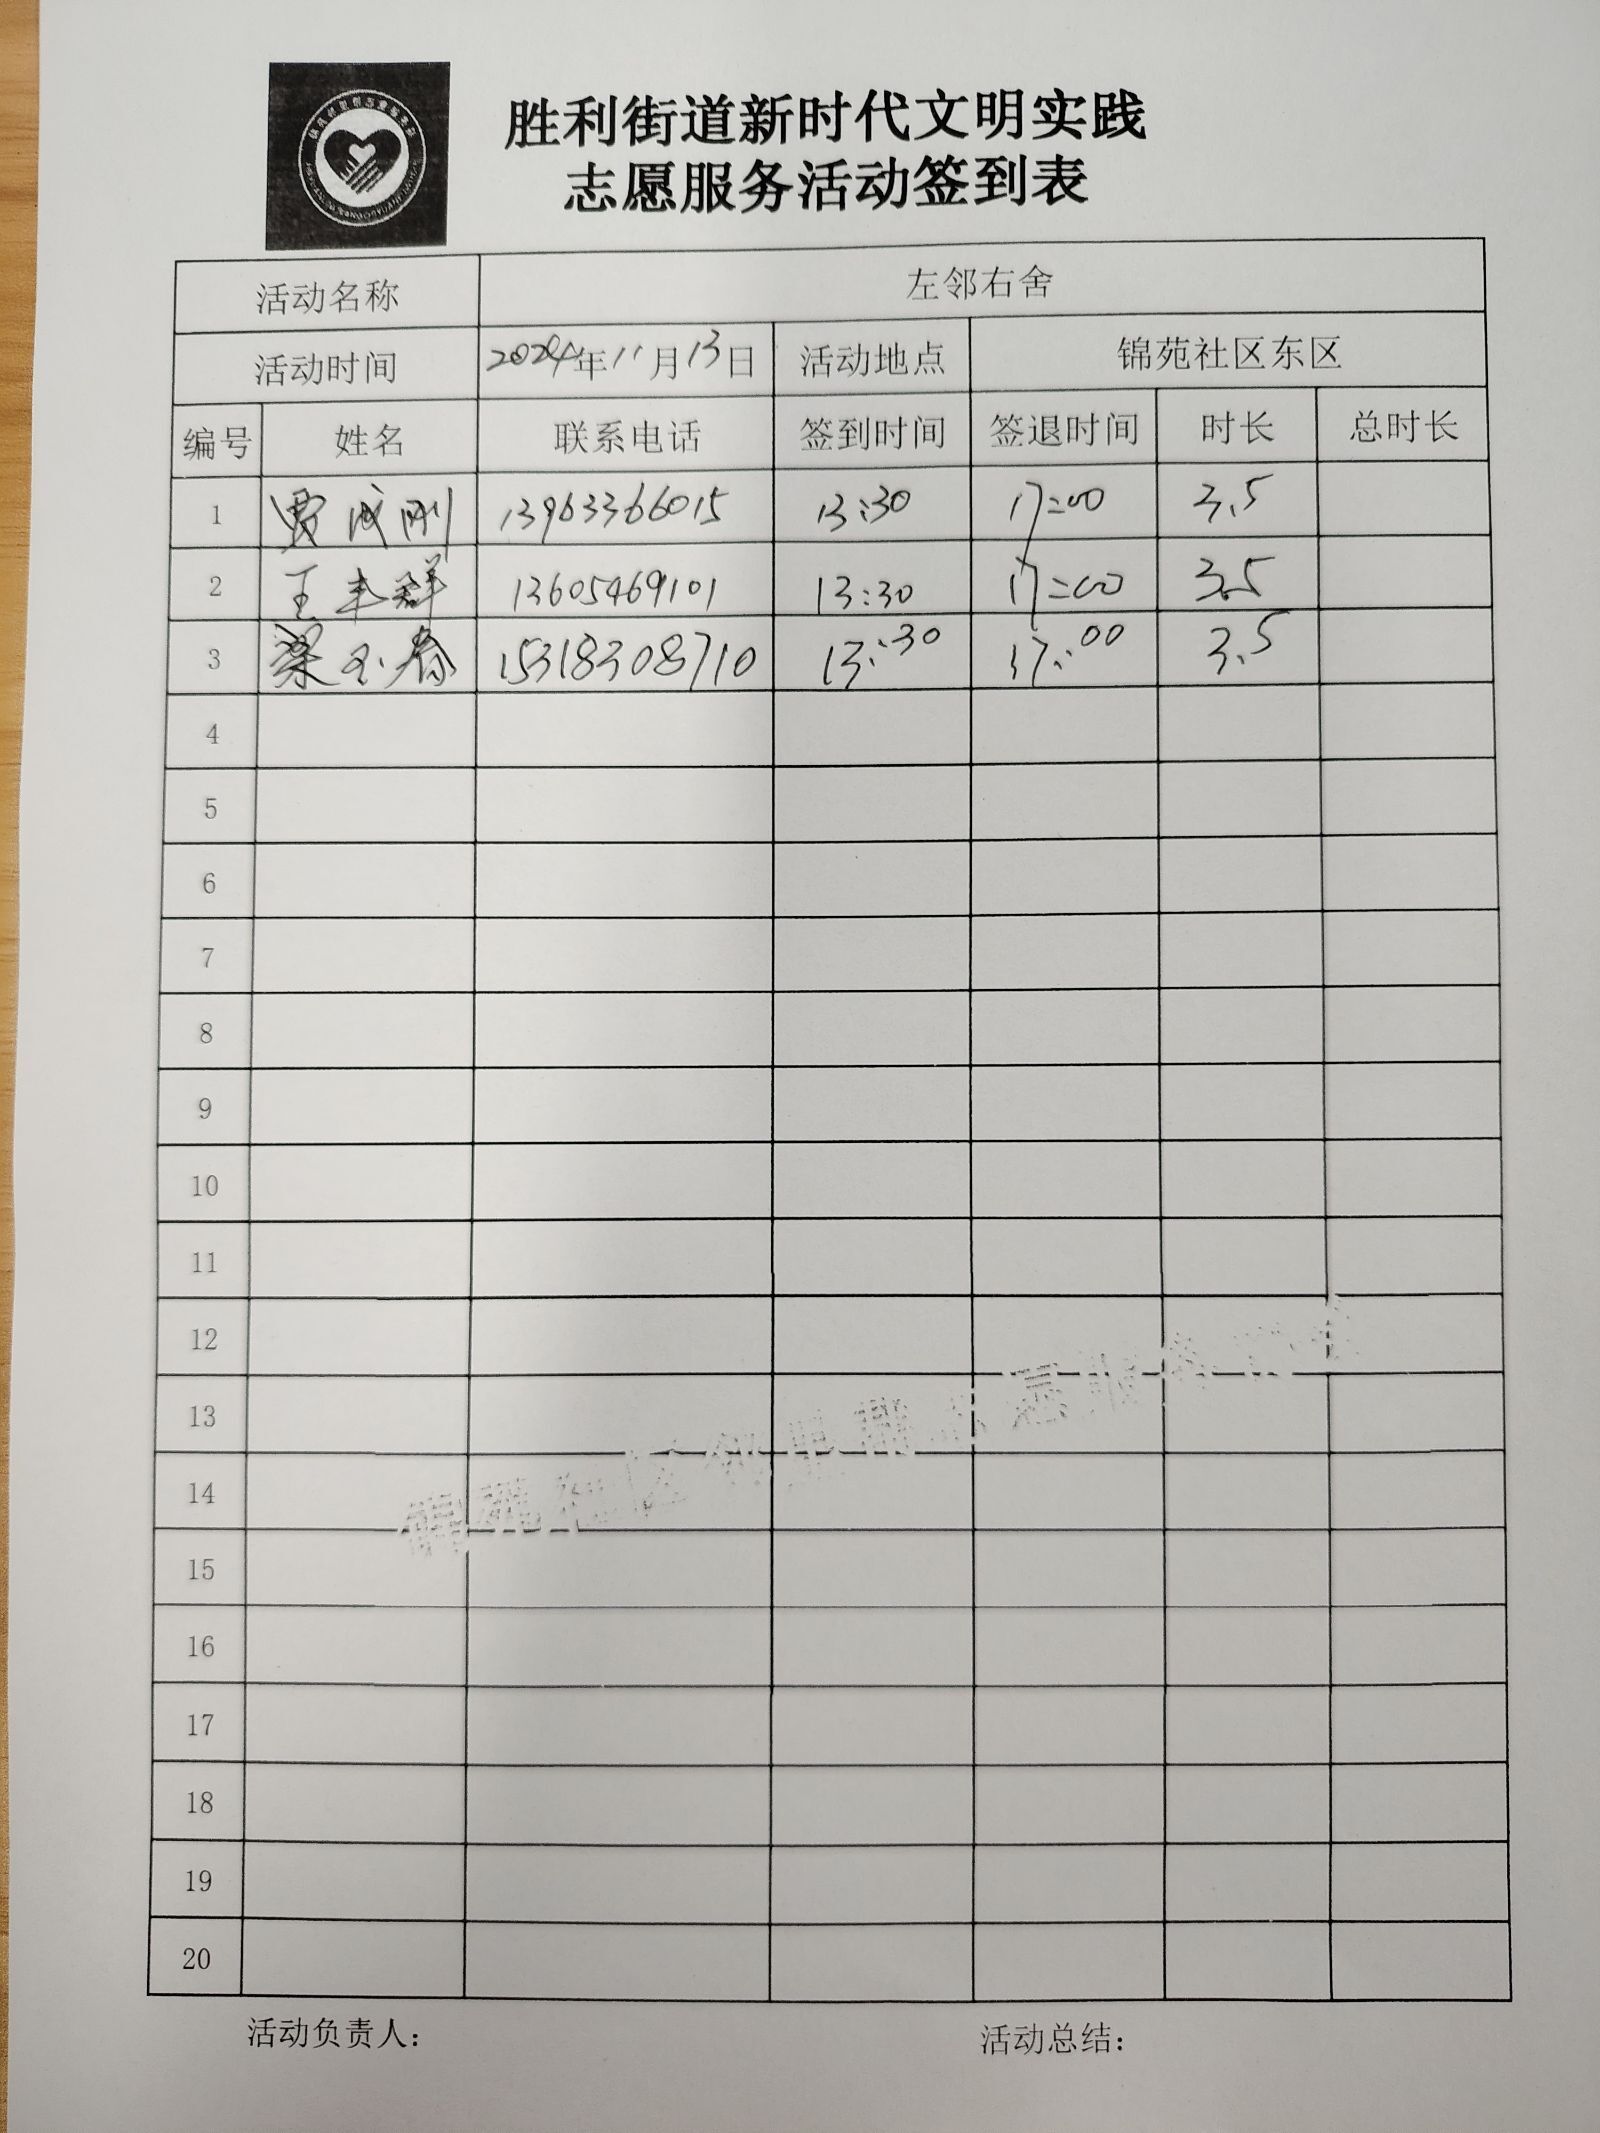 胜利街道新时代文明实践
志愿服务活动签到表
活动名称 左邻右舍
活动时间 2024年11月13日 活动地点 锦苑社区东区
编号 姓名 联系电话 签到时间 签退时间 时长 总时长
1 贾成刚 13963366015 13:30 17:00 3.5
2 王丰群 13605469101 13:30 17:00 3.5
3 梁玉春 15318308710 13:30 17:00 3.5
4
5
6
7
8
9
10
11
12
13
14
15
16
17
18
19
20
活动负责人: 活动总结: